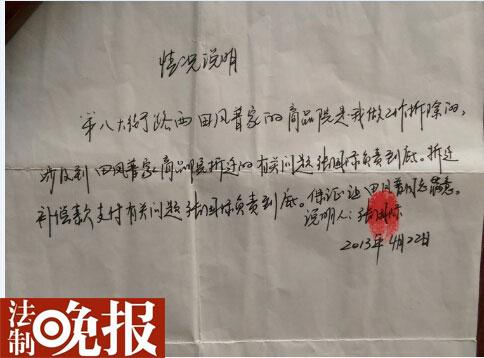 情况说明
第八大街路西田凤普家的商品院是我做工作拆除的,
涉及到田凤普家商品院拆迁的有关问题张国际负责到底。拆迁
补偿款支付有关问题张国际负责到底。保证让田凤普满意。
说明人:张国际
2013年4月22日
法制晚报